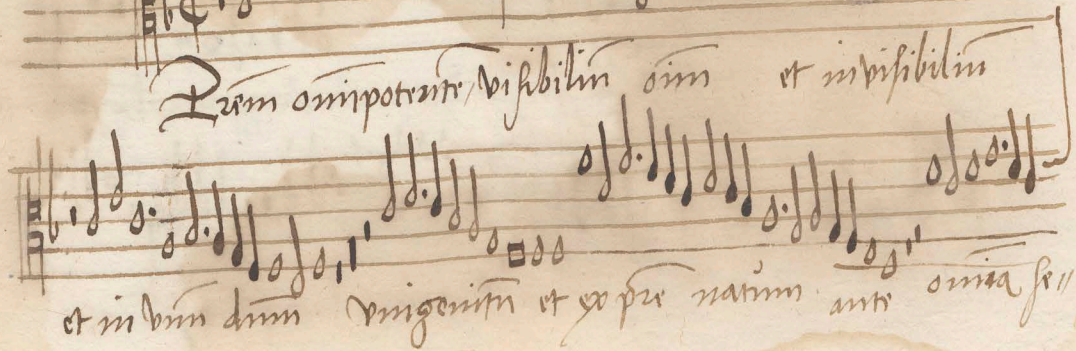 Prem omipotente, visibiliu oim et invisibiliu
et in vnu dnm vnigenitu et ex pre natum ante omnia se"